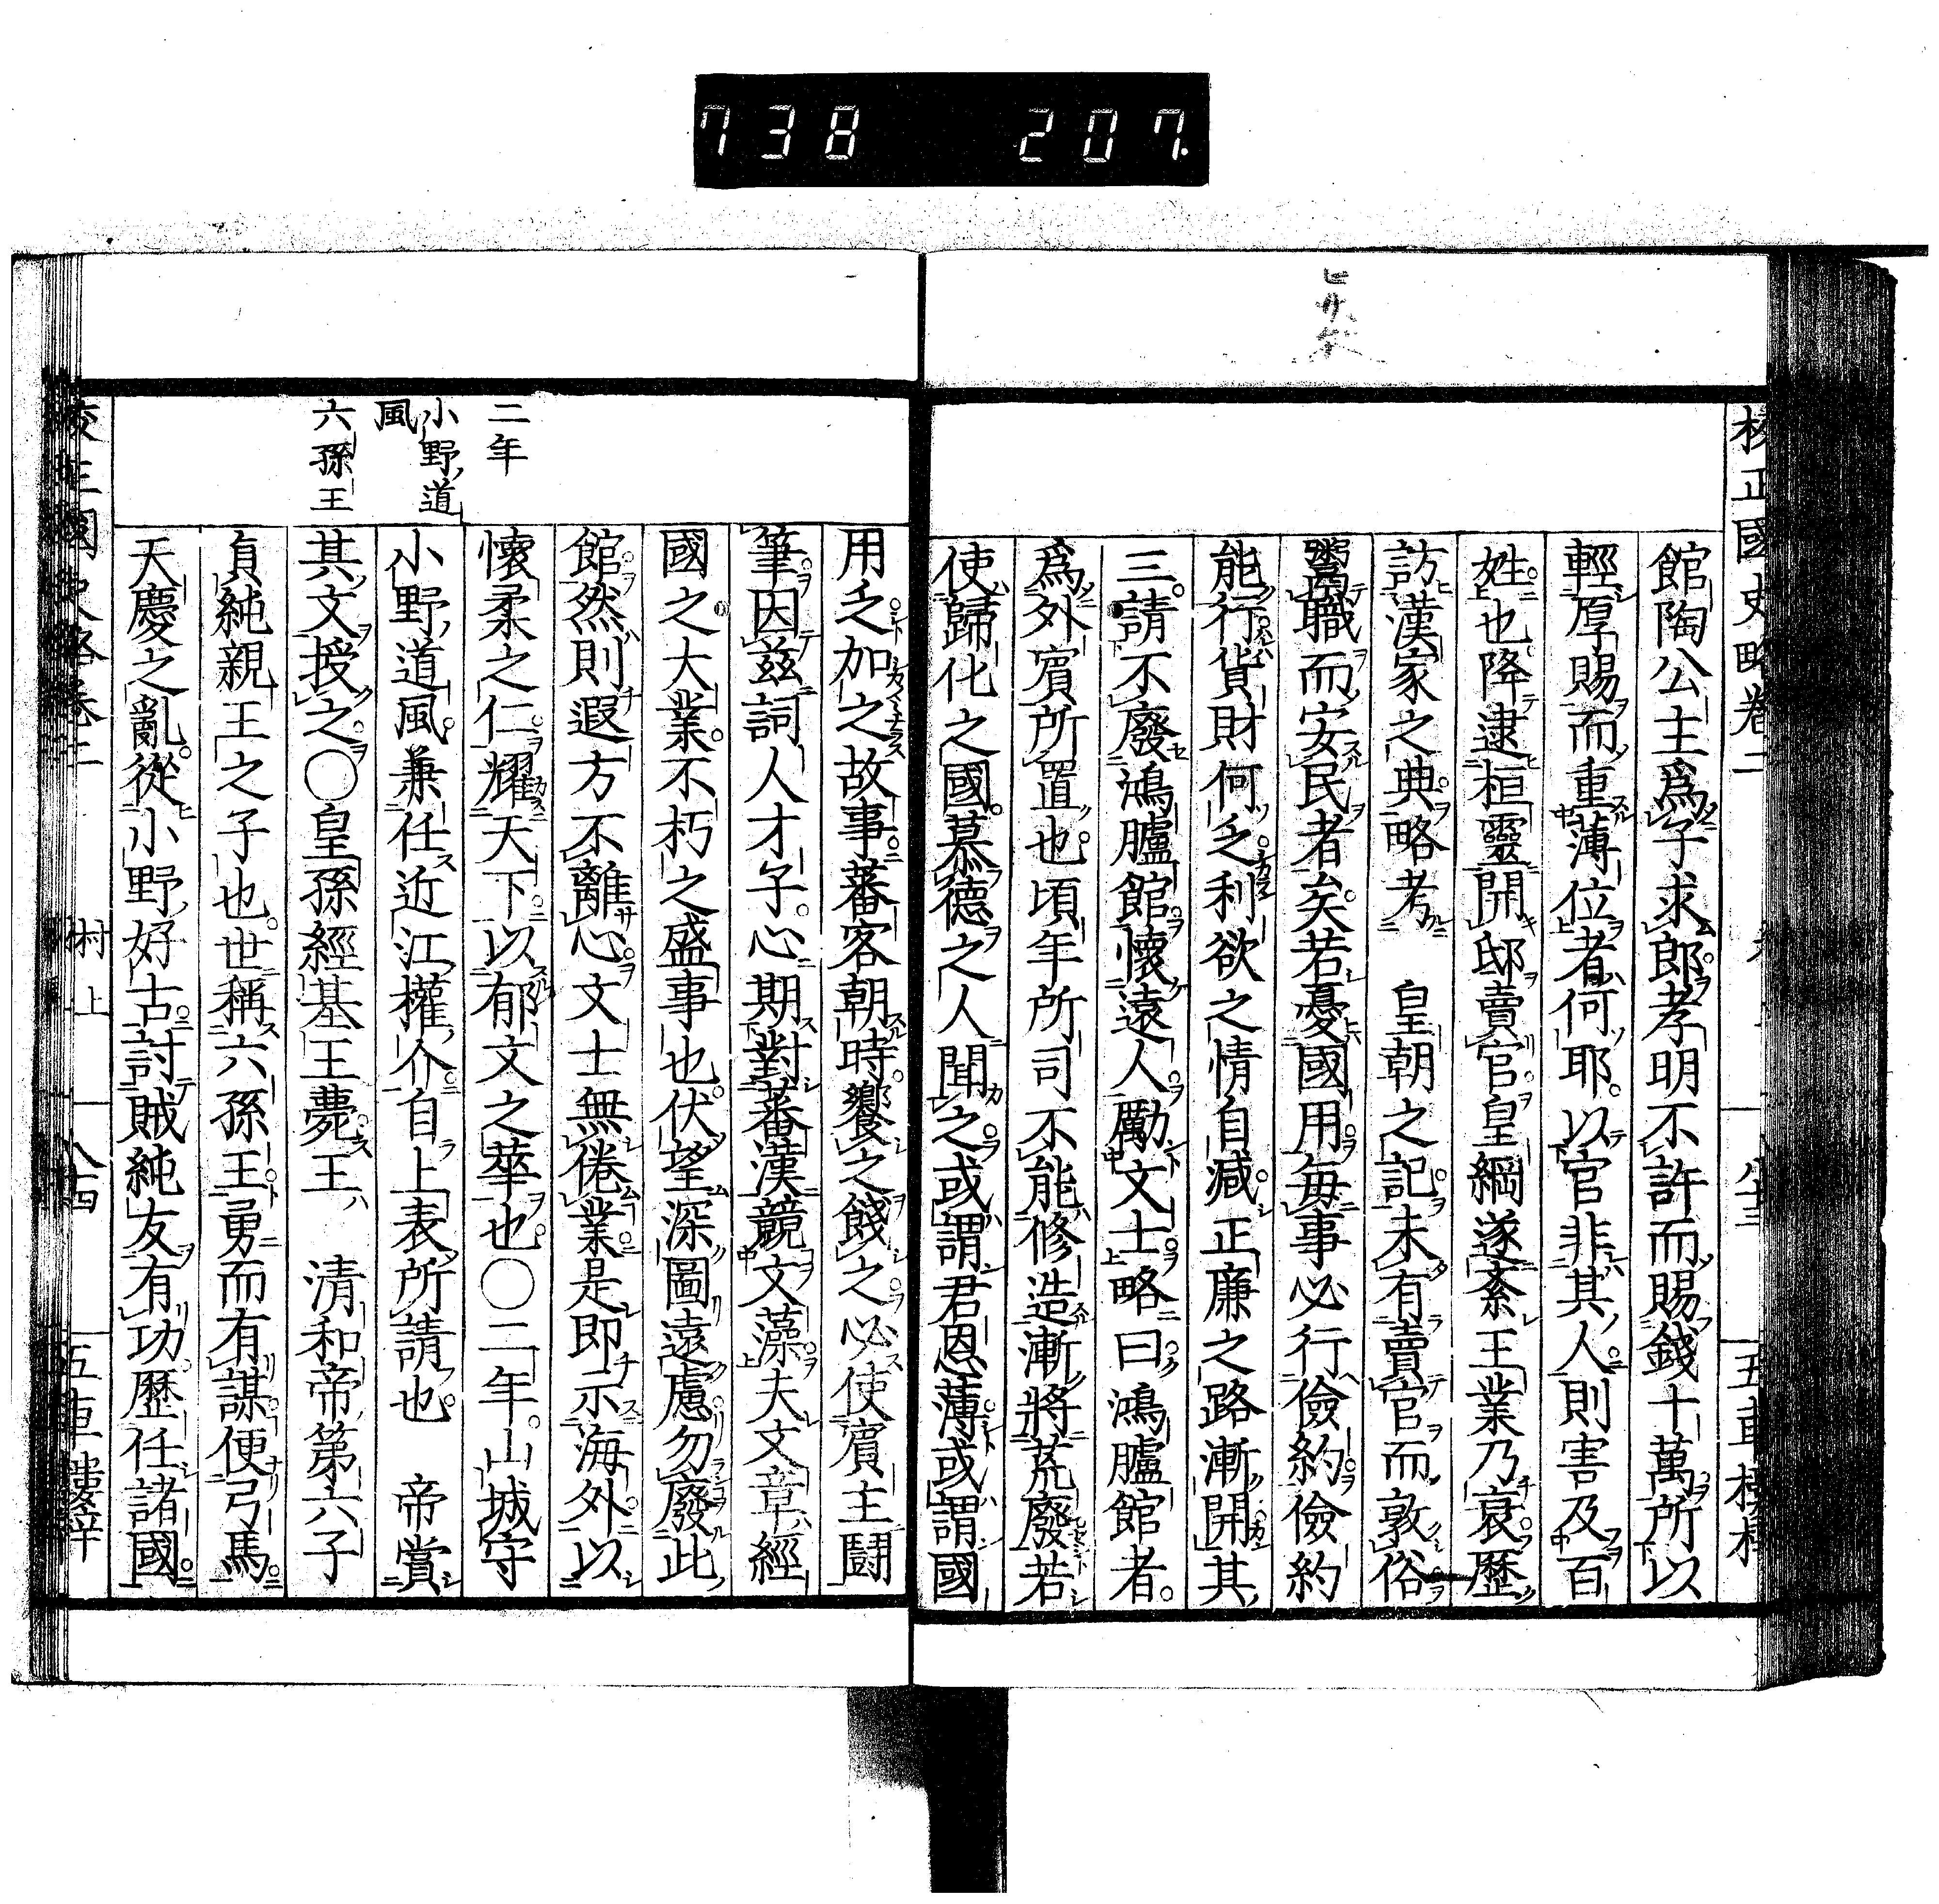 738 207
校正國史略卷二
館陶公主爲子求郎孝明不許而賜錢十萬所以
輕厚賜而重薄位者何耶以官非其人則害及百
姓也降逮桓靈開邸賣官皇綱遂紊王業乃衰歷
訪漢家之典略考 皇朝之記未有賣官而敦俗
鬻職而安民者矣若憂國用每事必行儉約儉約
能行貨財何乏利欲之情自減正廉之路漸開其
三請不廢鴻臚館懷遠人勵文士略曰鴻臚館者
爲外賓所置也頃年所司不能修造漸將荒廢若
使歸化之國慕德之人聞之或謂君恩薄或謂國
用乏加之故事蕃客朝時饗之餞之必使賓主鬪
筆因茲詞人才子心期對蕃漢競文藻夫文章經
國之大業不朽之盛事也伏望深圖遠慮勿廢此
館然則遐方不離心文士無倦業是即示海外以
懷柔之仁耀天下以郁文之華也〇二年山城守
小野道風兼任近江權介自上表所請也 帝賞
其文授之〇皇孫經基王薨王 清和帝第六子
貞純親王之子也世稱六孫王勇而有謀便弓馬
天慶之亂從小野好古討賊純友有功歷任諸國
二年
小野道
風
六孫王
村上
八十四
五車樓梓